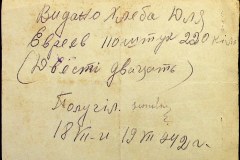 Видано Хлеба Для
Евреев поштук 220 кіло
(Двєсті двацать)
Получіл
18 VII-и 19 VII 942 г.